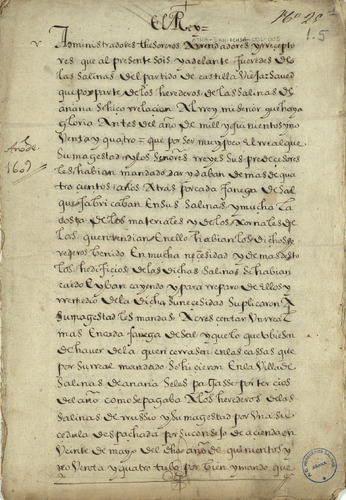 El Rey
Administradores thesoreros Arrendadores y recepto
res que al presente sois y adelante fueredes de
las salinas del partido de castilla vieja saved
que por parte de los herederos de las salinas de
añana se hico relacion Al rey mi señor que haya
gloria Antes del año de mill y quinientos y no
venta y quatro = que por ser muy poco El real que
su magestad y los señores reyes sus predecesores
les habian mandado dar y daban de mas de qua
tro cientos años Atras por cada fanega de sal
que fabricaban En sus salinas y mucha la
costa de los materiales y de los Jornales de
los que entendian En ello habian los dichos he
rederos benido En mucha necesidad y demas desto
los hedificios de las dichas salinas se habian
caido E yban cayendo y para reparo de ellos y
remedio de la dicha su necesidad suplicaron A
su magestad les mandase Acrescentar Un real
mas En cada fanega de sal y que lo que obiesen
de haver de la que encerrasen en las cassas que
por su real mandado se hicieron En la Villa de
salinas de anana se les pagasse por tercios
del año como se pagaba A los herederos de las
salinas de russio y su magestad por Una su
cedula despachada por su consejo de acienda en
Veinte de mayo del dho año de quinientos y
no Venta y quatro tubo por bien y mando que
Año de
1609
1.5